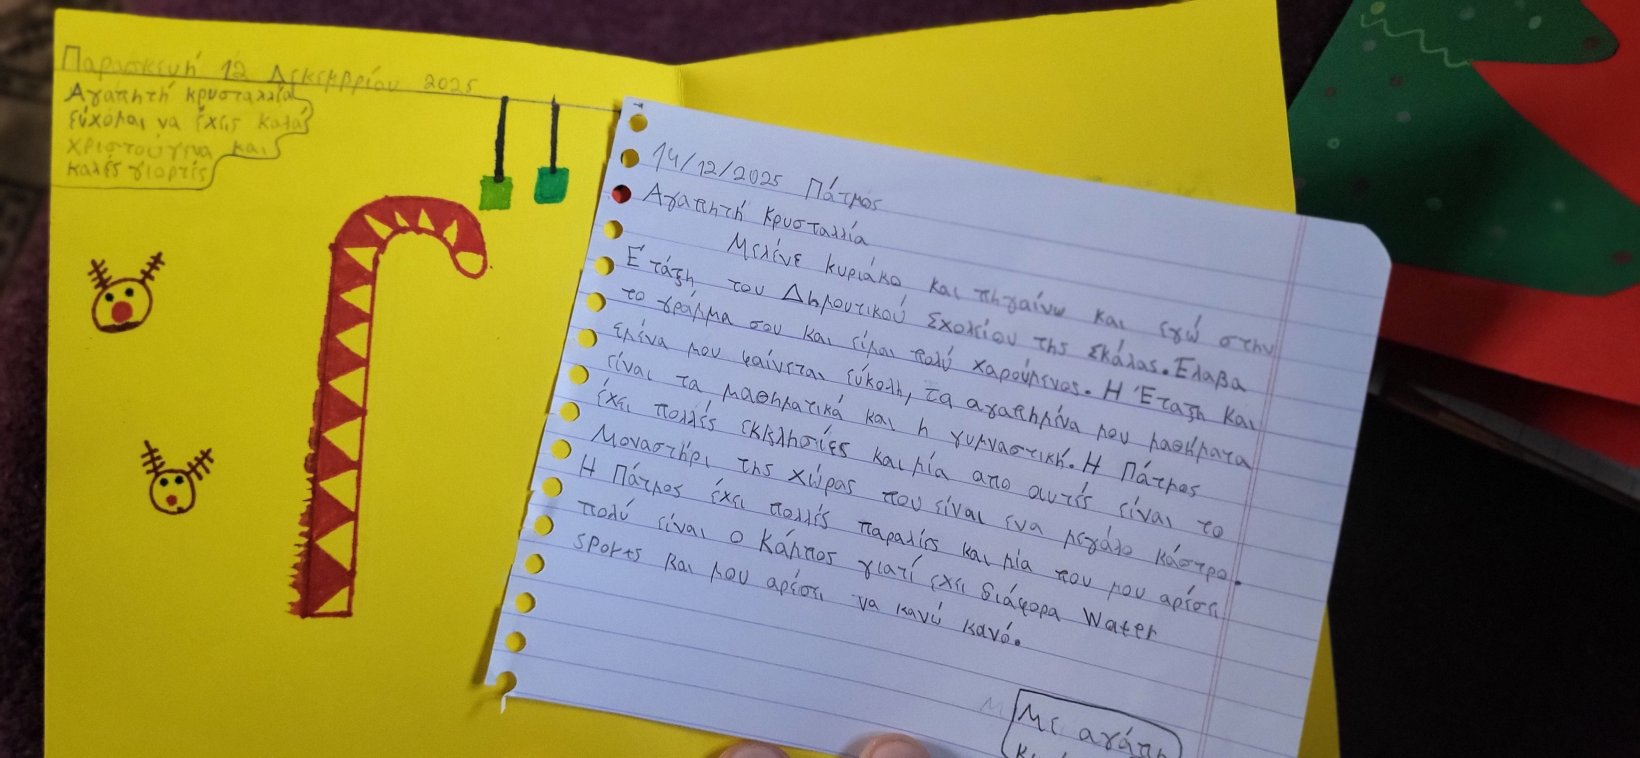 Παρασκευή 12 Δεκεμβρίου 2025
Αγαπητή κρυσταλλία
εύχομαι να έχεις καλά
χριστούγεννα και
καλές γιορτές
14/12/2025 Πάτμος
Αγαπητή Κρυσταλλία
Μελένε κυριάκο και πηγαίνω και εγώ στην
Έ τάξη του Δημοτικού Σχολείου της Σκάλας. Έλαβα
το γράμμα σου και είμαι πολύ χαρούμενος. Η Έταξη και
εμένα μου φαίνεται εύκολη, τα αγαπημένα μου μαθήματα
είναι τα μαθηματικά και η γυμναστική. Η Πάτμος
έχει πολλές εκκλησίες και μία απο αυτές είναι το
Μοναστήρι της χώρας που είναι ενα μεγάλο κάστρο.
Η Πάτμος έχει πολλές παραλίες και μία που μου αρέσει
πολύ είναι ο Κάμπος γιατί έχει διάφορα Water
sports και μου αρέσει να κανώ κανό.
Με αγάπη